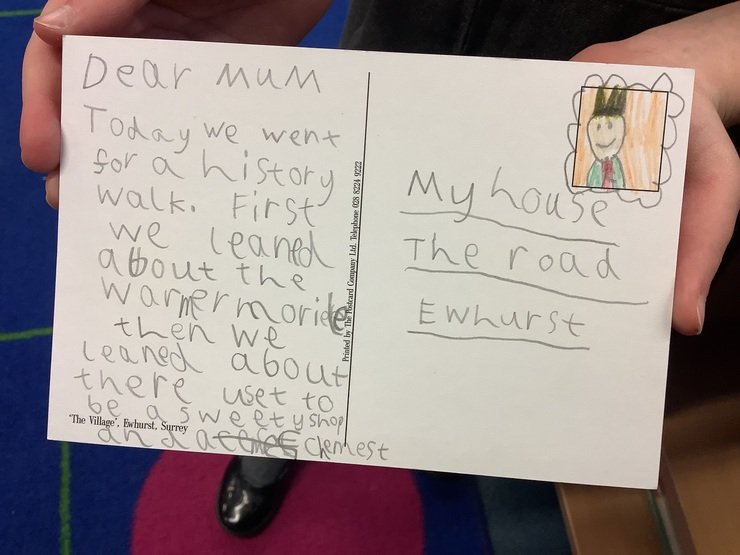 Dear MUM
Today we went
for a history
walk. First
we leaned
about the
warmer morie
then we
leaned about
there uset to
be a sweety shop
and a chemest
'The Village', Ewhurst, Surrey
Printed by The Postcard Company Ltd. Telephone 028 8224 9222
My house
The road
Ewhurst